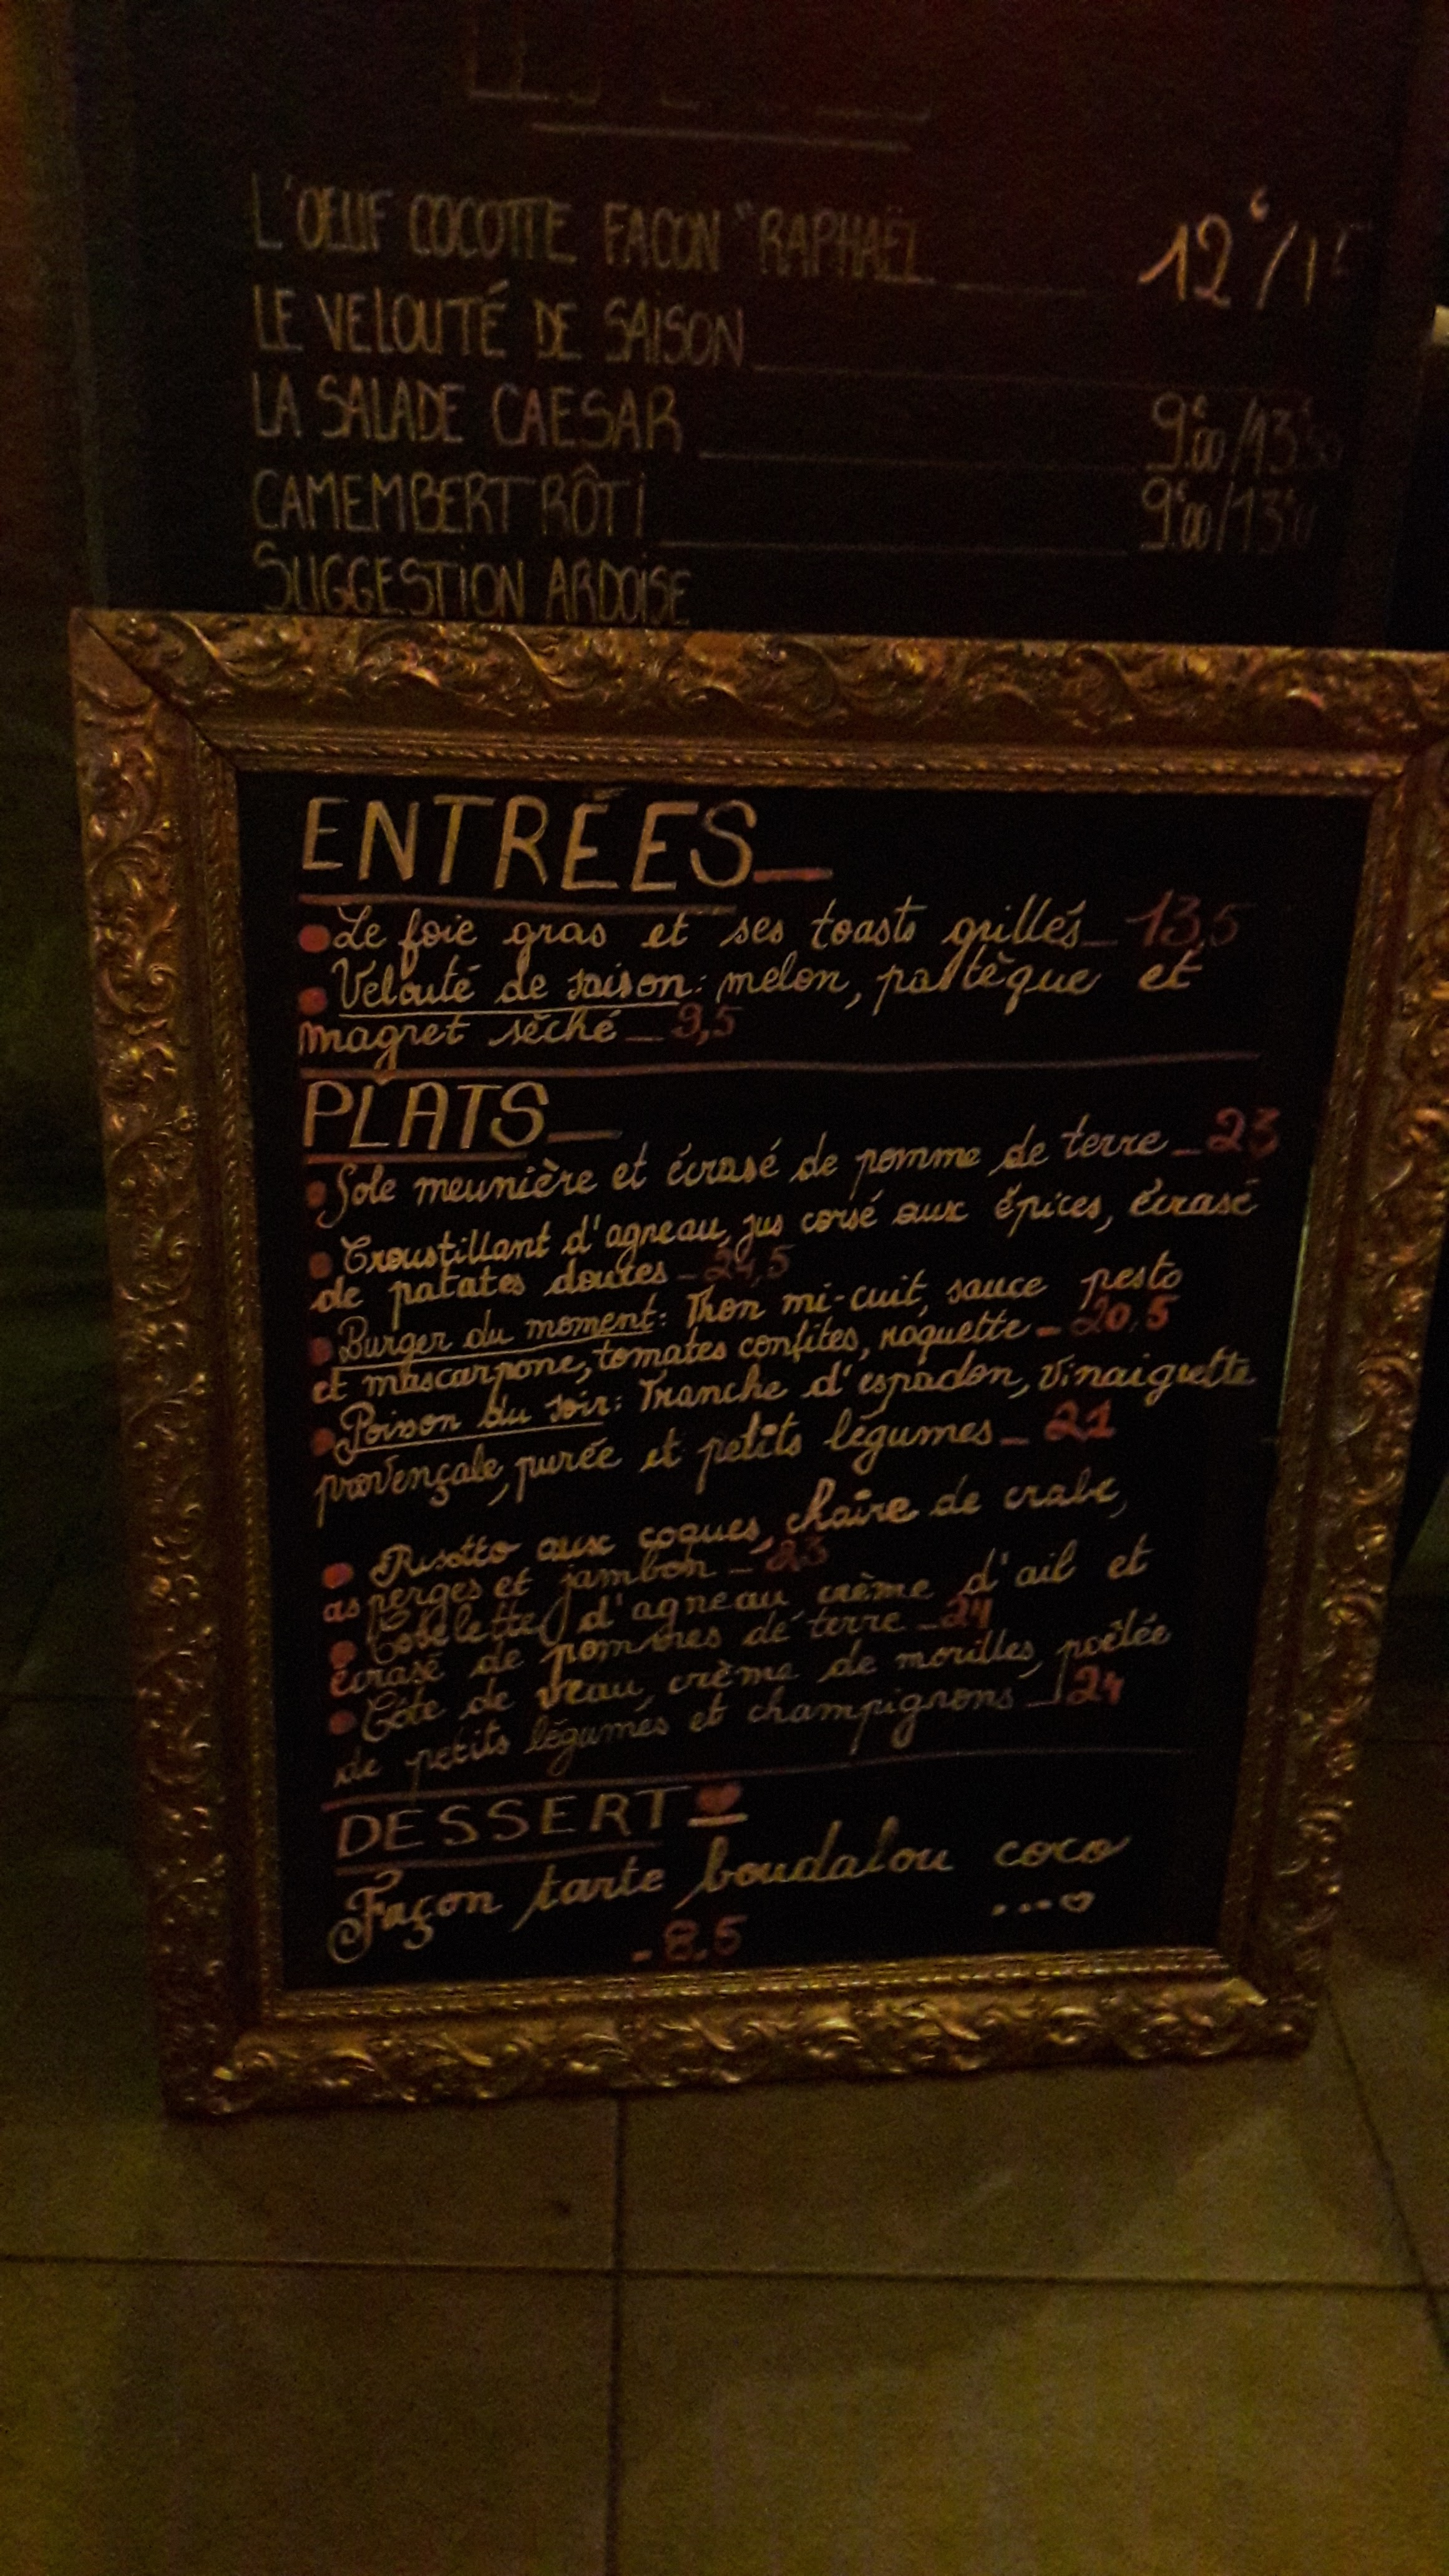 L'OEUF COCOTTE FACON "RAPHAËL
LE VELOUTÉ DE SAISON
LA SALADE CAESAR 9€00/13€
CAMEMBERT RÔTI 9€00/13€
SUGGESTION ARDOISE
ENTRÉES
Le foie gras et ses toasts grillés_13,5
Velouté de saison: melon, pastèque et
magret séché_9,5
PLATS
Sole meunière et écrasé de pomme de terre_23
Croustillant d'agneau, jus corsé aux épices, écrasé
de patates douces_24,5
Burger du moment: Thon mi-cuit, sauce pesto
et mascarpone, tomates confites, roquette_20,5
Poisson du soir: Tranche d'espadon, vinaigrette
provençale, purée et petits légumes_21
Risotto aux coques, chaire de crabe,
asperges et jambon_23
d'agneau crème d'ail et
écrasé de pommes de terre_24
Côte de veau, crème de morilles, poêlée
de petits légumes et champignons_24
DESSERT
Façon tarte boudalou coco
-8.5